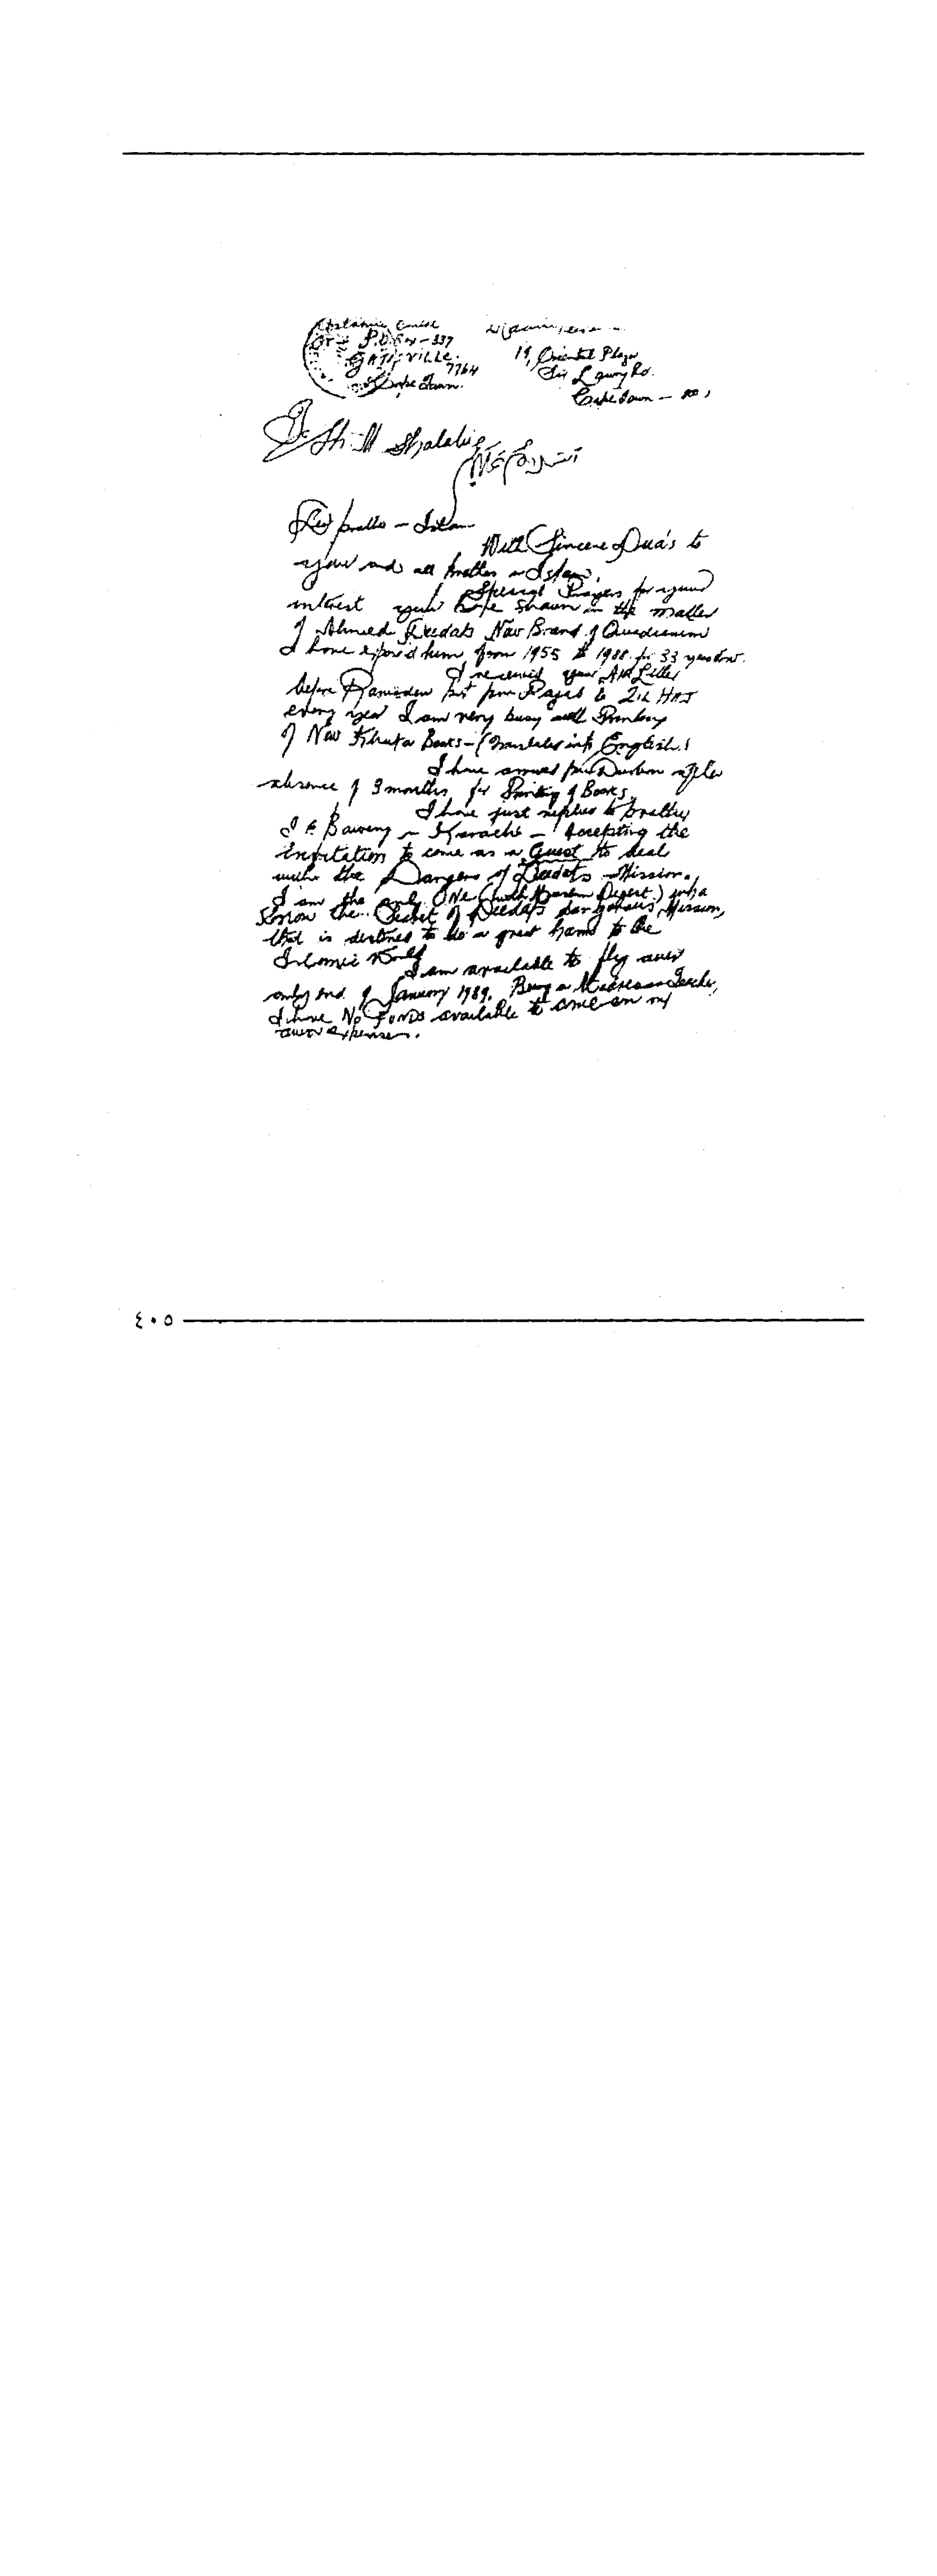 Islamic
P.O Box - 337
GATESVILLE.
7764
Cape Town.
19, Oriental Plaza
Sir Lowry Rd.
Cape Town -
Sh. M Shalabie
- Islam
With Sincere Dua's to
you and all brothers in Islam.
Special Prayers for your
interest you have shown in the matter
of Ahmed Deedats New Brand of
I have exposed him from 1955 to 1988 for 33 years now.
I received your Air Letter
before Ramadan but from Rajab to Zil HAJ
every year I am very busy with Printing
of New Khutba Books - (translated into English.)
I have arrived from Durban after
absence of 3 months, for Printing of Books.
I have just replied to brother
I E Bawany in Karachi - Accepting the
invitation to come as a Guest to deal
with the Dangers of Deedats Mission.
I am the only ONE (with) who
know the Secret of Deedats dangerous Mission,
that is destined to do a great harm to the
Islamic World
I am available to fly over
only end of January 1989. Being a Madressa Teacher,
I have No FUNDS available to come on my
own expenses.
٤٠٥